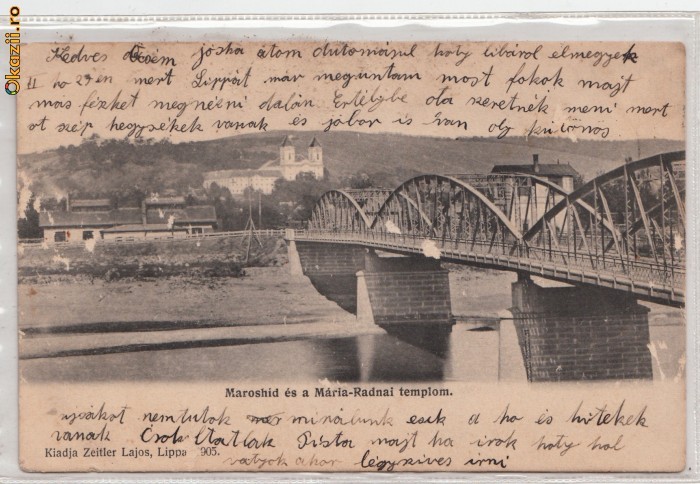 Okazii.ro
Kedves öcsém jóska átom dutomásul hoty libáról elmegyek
II ho 29 én mert Lippát már meguntam most fokok majt
mas fézket megnélni dalán. Ertélybe ota szeretnék meni mert
ot szép hegységek vanak és jóbor is van oly különös
Maroshid és a Mária-Radnai templom.
ujságot nemtutok minálunk esik a ho és hitekek
vanak Pista majt ha irok hoty hol
vatyok akor légyszives irni
Kiadja Zeitler Lajos, Lippa 905.